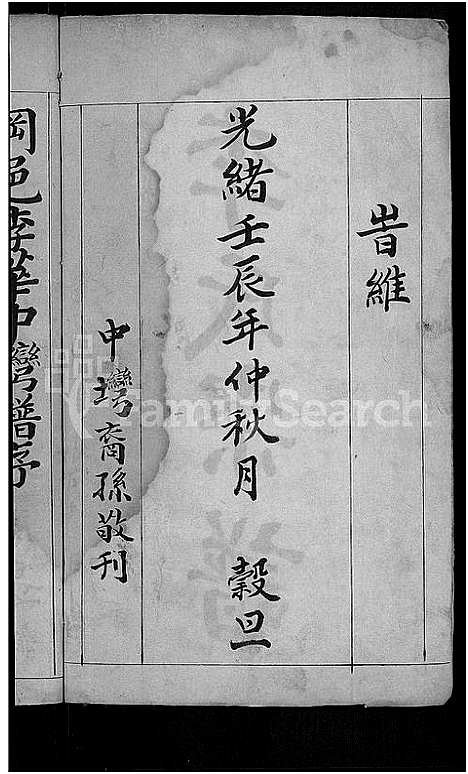 旹維
光緒壬辰年仲秋月 穀旦
中塆裔孫敬刊
岡邑李華中灣譜序
FamilySearch